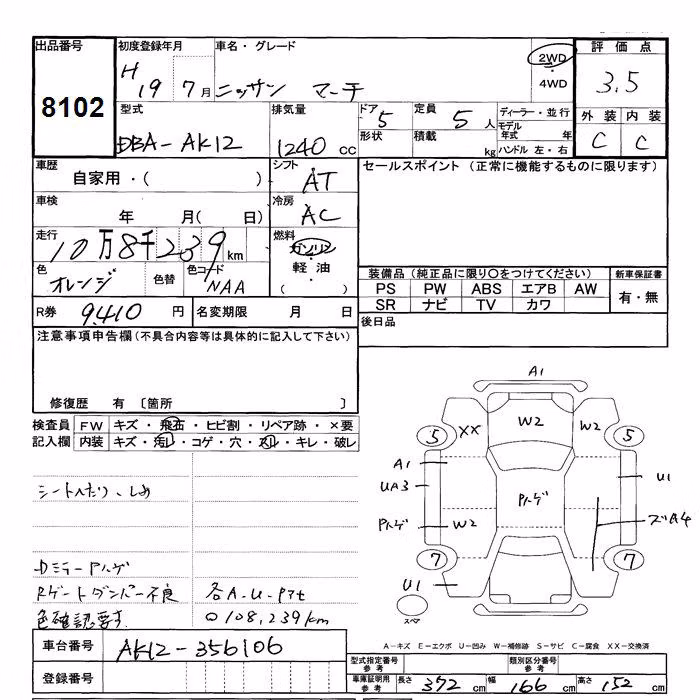 出品番号 初度登録年月 車名・グレード 評価点
8102 H19 7月 ニッサン マーチ 2WD・4WD 3.5
型式 排気量 ドア 5 定員 5人 ディーラー・並行 外装 内装
DBA-AK12 1240cc 形状 積載 kg モデル年式 年 ハンドル 左・右 C C
車歴 シフト セールスポイント (正常に機能するものに限ります)
自家用・( ) AT
車検 冷房
年 月( 日) AC
走行 燃料
10万8千239km ガソリン
色 色替 色コード 軽油 装備品(純正品に限り○をつけてください) 新車保証書
オレンジ NAA ( ) PS PW ABS エアB AW 有・無
R券 9410円 名変期限 月 日 SR ナビ TV カワ
注意事項申告欄(不具合内容等は具体的に記入して下さい) 後日品
修復歴 有 〔箇所 〕
検査員 FW キズ・飛石・ヒビ割・リペア跡・×要
記入欄 内装 キズ・汚レ・コゲ・穴・スレ・キレ・破レ
A1
XX W2 W2
5 5
A1
UA3 U1
W2
7 7
U1
スペア
Rゲートダンパー不良
色確認要す 0108,239km
A-キズ E-エクボ U-凹み W-補修跡 S-サビ C-腐食 XX-交換済
車台番号 AK12-356106
型式指定番号 参考 類別区分番号 参考
登録番号 車庫証明用 参考 長さ 372cm 幅 166cm 高さ 152cm